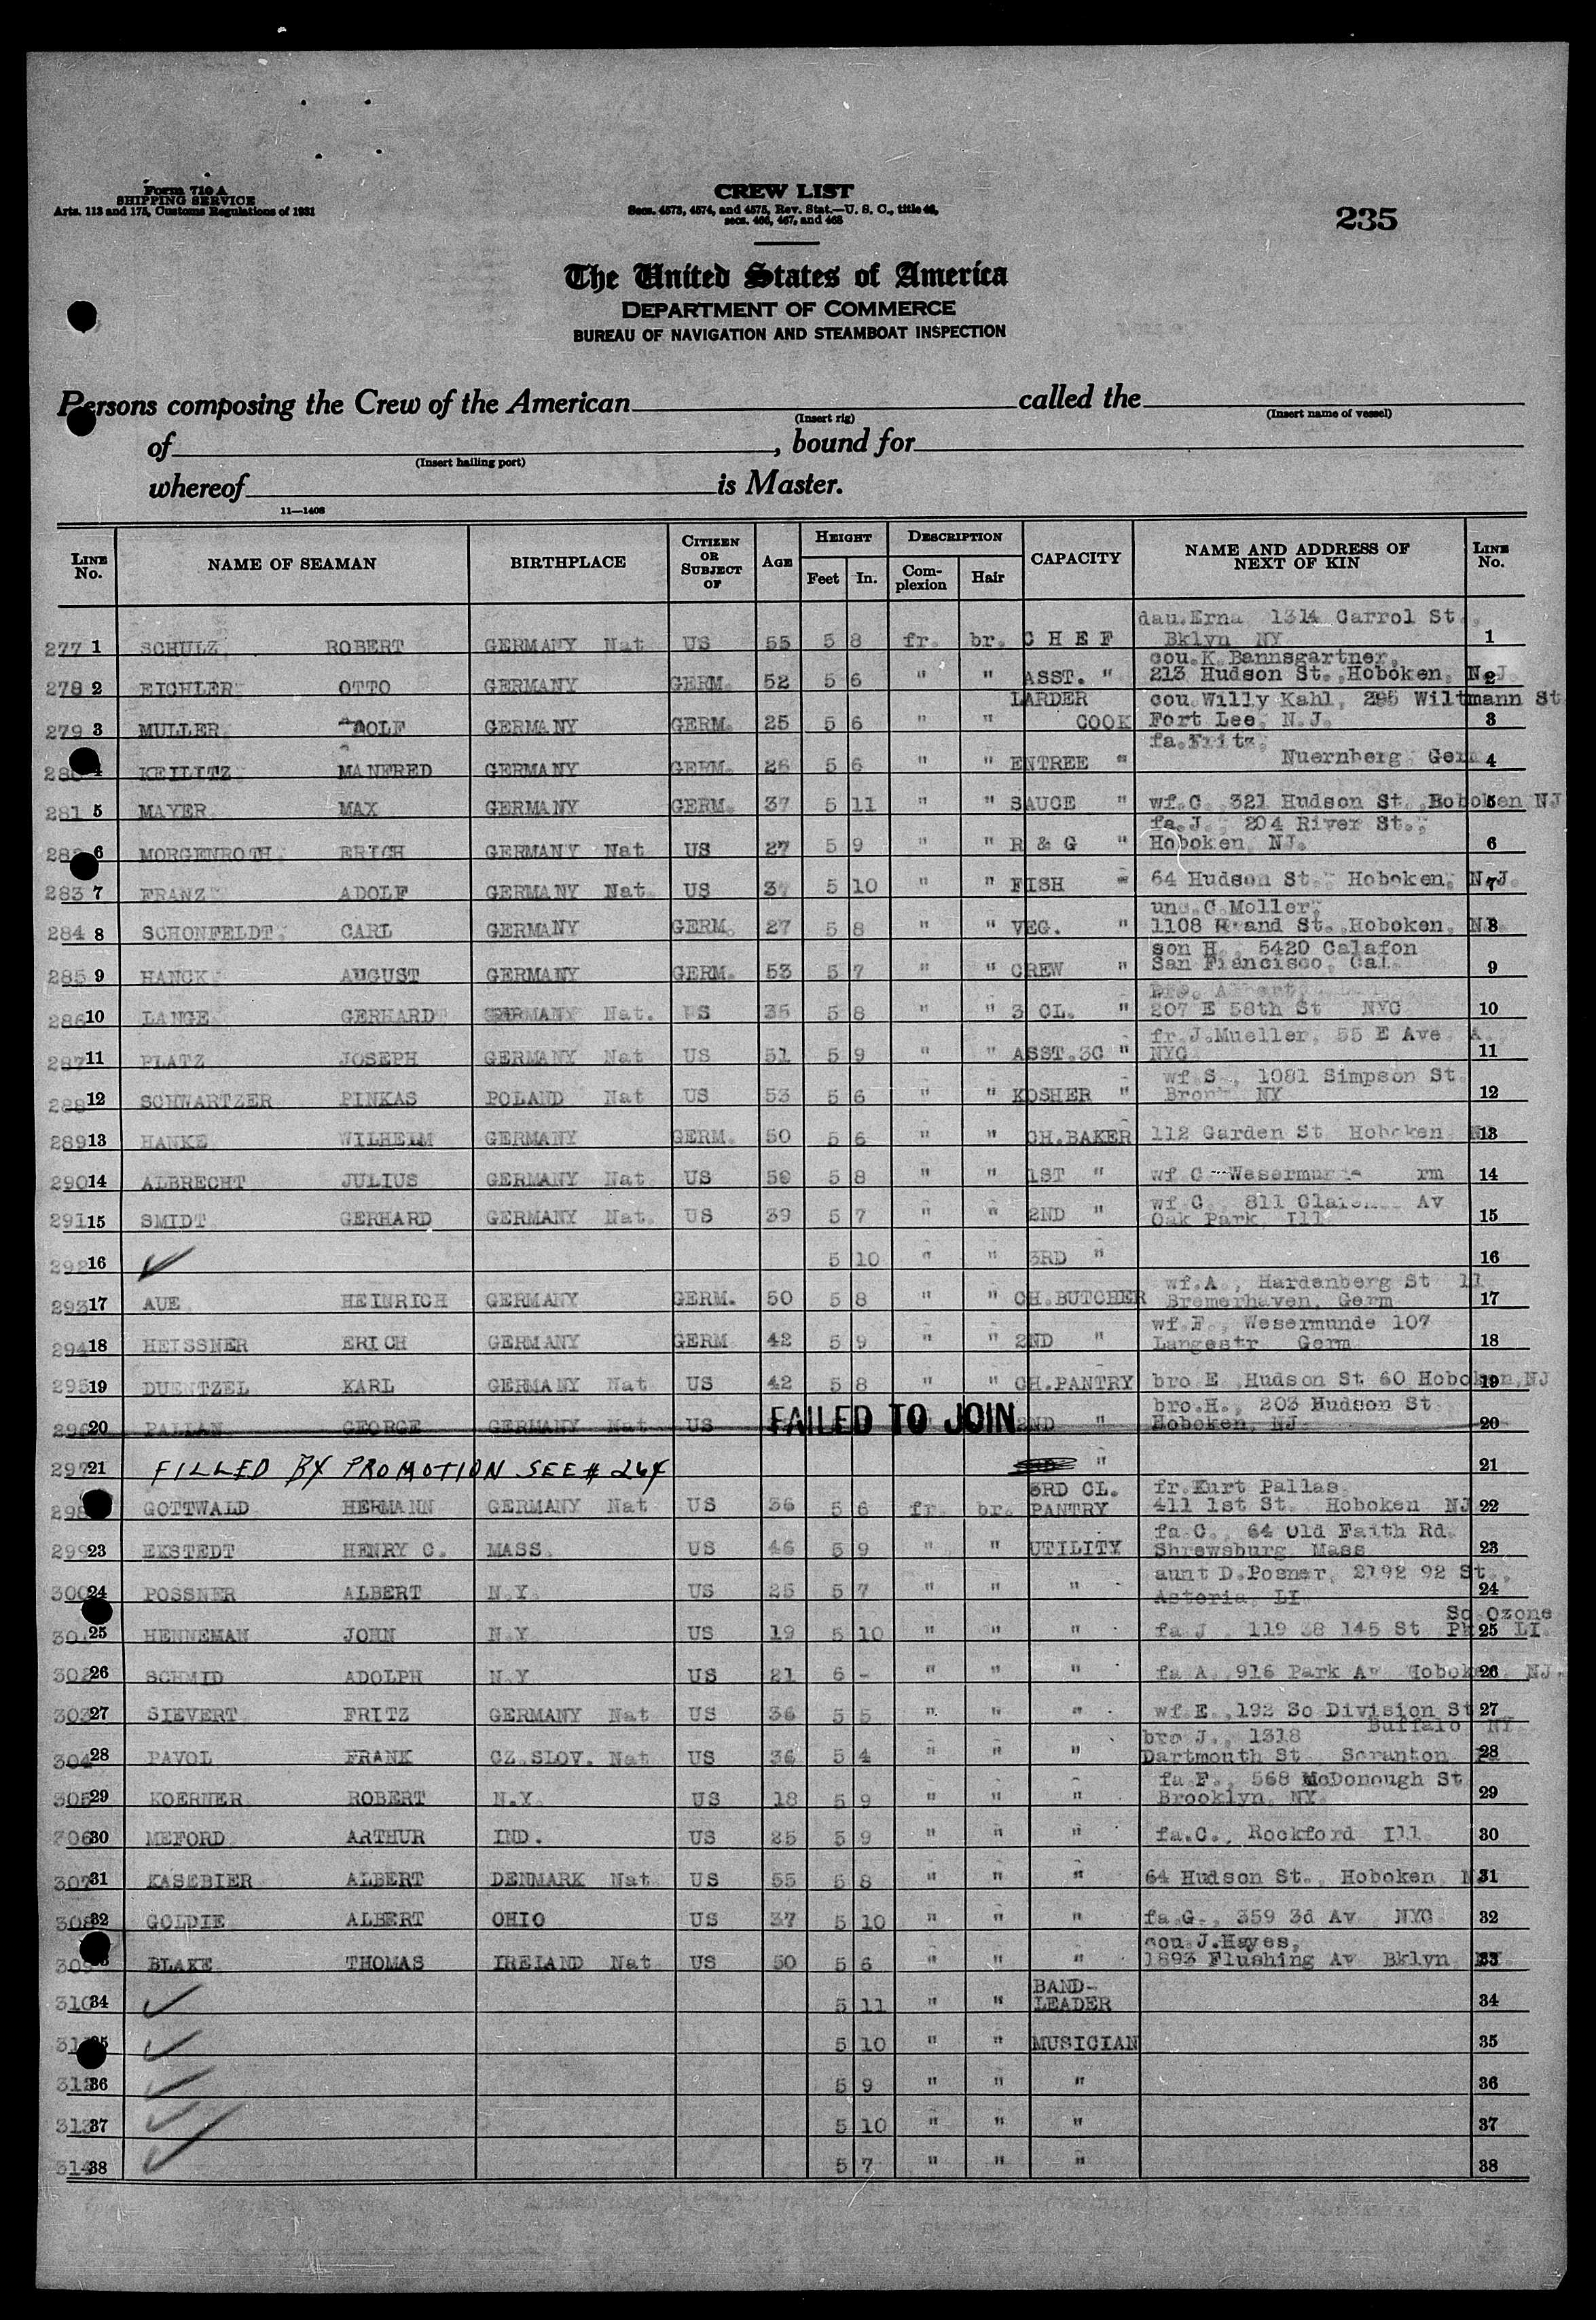 Form 710 A
SHIPPING SERVICE
Arts. 113 and 175, Customs Regulations of 1931
CREW LIST
Secs. 4573, 4574, and 4575, Rev. Stat.—U. S. C., title 46,
secs. 466, 467, and 468
235
The United States of America
DEPARTMENT OF COMMERCE
BUREAU OF NAVIGATION AND STEAMBOAT INSPECTION
Persons composing the Crew of the American called the
(Insert rig) (Insert name of vessel)
of , bound for
(Insert hailing port)
whereof is Master.
11—1408
LINE No. NAME OF SEAMAN BIRTHPLACE CITIZEN OR SUBJECT OF AGE HEIGHT Feet In. DESCRIPTION Complexion Hair CAPACITY NAME AND ADDRESS OF NEXT OF KIN LINE No.
dau.Erna 1314 Carrol St.,
277 1 SCHULZ ROBERT GERMANY Nat US 55 5 8 fr. br. C H E F Bklyn NY 1
cou.K.Bannsgartner,
278 2 EICHLER OTTO GERMANY GERM. 52 5 6 " " ASST. " 213 Hudson St.,Hoboken, N.J. 2
LARDER cou.Willy Kahl, 295 Wiltmann St
279 3 MULLER ADOLF GERMANY GERM. 25 5 6 " " COOK Fort Lee, N.J. 3
fa.Fritz,
4 KEILITZ MANFRED GERMANY GERM. 26 5 6 " " ENTREE " Nuernberg Germ 4
281 5 MAYER MAX GERMANY GERM. 37 5 11 " " SAUCE " wf.C. 321 Hudson St.,Hoboken NJ 5
fa.J., 204 River St.,
6 MORGENROTH ERICH GERMANY Nat US 27 5 9 " " R & G " Hoboken NJ. 6
283 7 FRANZ ADOLF GERMANY Nat. US 37 5 10 " " FISH " 64 Hudson St., Hoboken, N.J. 7
unc.C.Moller,
284 8 SCHONFELDT CARL GERMANY GERM. 27 5 8 " " VEG. " 1108 St.,Hoboken, NJ 8
son H., 5420 Calafon
285 9 HANCK AUGUST GERMANY GERM. 53 5 7 " " CREW " San Francisco, Cal. 9
bro. Albert,
286 10 LANGE GERHARD GERMANY Nat. US 35 5 8 " " 3 CL. " 207 E 58th St NYC 10
fr.J.Mueller, 55 E Ave A.
287 11 PLATZ JOSEPH GERMANY Nat US 51 5 9 " " ASST.3C " NYC 11
wf S., 1081 Simpson St
288 12 SCHWARTZER PINKAS POLAND Nat US 53 5 6 " " KOSHER " Bronx NY 12
289 13 HANKE WILHELM GERMANY GERM. 50 5 6 " " CH.BAKER 112 Garden St Hoboken 13
290 14 ALBRECHT JULIUS GERMANY Nat US 56 5 8 " " 1ST " wf C 14
wf C., 811 Av
291 15 SMIDT GERHARD GERMANY Nat. US 39 5 7 " " 2ND " Oak Park Ill 15
292 16 ✓ 5 10 " " 3RD " 16
wf.A., Hardenberg St 11
293 17 AUE HEINRICH GERMANY GERM. 50 5 8 " " CH.BUTCHER Bremerhaven, Germ 17
wf F., Wesermunde 107
294 18 HEISSNER ERICH GERMANY GERM 42 5 9 " " 2ND " Langestr Germ 18
295 19 DUENTZEL KARL GERMANY Nat US 42 5 8 " " CH.PANTRY bro E.,Hudson St 60 Hoboken,NJ 19
bro.H., 203 Hudson St
296 20 PALLAN GEORGE GERMANY Nat US FAILED TO JOIN 2ND " Hoboken, NJ 20
297 21 FILLED BY PROMOTION SEE # 264 " 21
3RD CL. fr.Kurt Pallas
298 GOTTWALD HERMANN GERMANY Nat US 36 5 6 fr. br. PANTRY 411 1st St. Hoboken NJ 22
fa C., 64 Old Faith Rd.
299 23 EKSTEDT HENRY C. MASS. US 46 5 9 " " UTILITY Shrewsburg Mass 23
aunt D.Posner, 2192 92 St.,
300 24 POSSNER ALBERT N.Y. US 25 5 7 " " " Astoria, LI 24
So Ozone
301 25 HENNEMAN JOHN N.Y US 19 5 10 " " " fa J., 119 38 145 St Pk LI. 25
302 26 SCHMID ADOLPH N.Y US 21 6 - " " " fa A.,916 Park Av Hoboken, NJ. 26
303 27 SIEVERT FRITZ GERMANY Nat US 36 5 5 " " " wf E.,192 So Division St 27
Buffalo NY
bro J., 1318
304 28 PAVOL FRANK CZ.SLOV. Nat US 36 5 4 " " " Dartmouth St Scranton Pa 28
fa.F., 568 McDonough St
305 29 KOERNER ROBERT N.Y. US 18 5 9 " " " Brooklyn, NY. 29
306 30 MEFORD ARTHUR IND. US 25 5 9 " " " fa.C., Rockford Ill 30
307 31 KASEBIER ALBERT DENMARK Nat US 55 5 8 " " " 64 Hudson St., Hoboken 31
308 32 GOLDIE ALBERT OHIO US 37 5 10 " " " fa.G., 359 3d Av NYC 32
cou J.Hayes,
309 BLAKE THOMAS IRELAND Nat US 50 5 6 " " " 1893 Flushing Av Bklyn NY. 33
BAND-
310 34 ✓ 5 11 " " LEADER 34
35 ✓ 5 10 " " MUSICIAN 35
312 36 ✓ 5 9 " " " 36
313 37 ✓ 5 10 " " " 37
314 38 ✓ 5 7 " " " 38